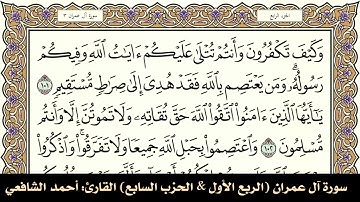 سورة آل عمران ٣
الجزء الرابع
وَكَيْفَ تَكْفُرُونَ وَأَنتُمْ تُتْلَىٰ عَلَيْكُمْ ءَايَٰتُ ٱللَّهِ وَفِيكُمْ
رَسُولُهُۥ ۗ وَمَن يَعْتَصِم بِٱللَّهِ فَقَدْ هُدِىَ إِلَىٰ صِرَٰطٍ مُّسْتَقِيمٍ ١٠١
يَٰٓأَيُّهَا ٱلَّذِينَ ءَامَنُوا۟ ٱتَّقُوا۟ ٱللَّهَ حَقَّ تُقَاتِهِۦ وَلَا تَمُوتُنَّ إِلَّا وَأَنتُم
مُّسْلِمُونَ ١٠٢ وَٱعْتَصِمُوا۟ بِحَبْلِ ٱللَّهِ جَمِيعًا وَلَا تَفَرَّقُوا۟ ۚ وَٱذْكُرُوا۟
سورة آل عمران (الربع الأول & الحزب السابع) القارئ: أحمد الشافعي